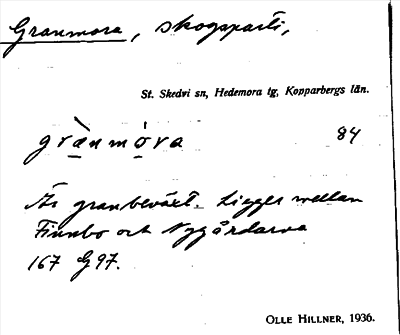 Granmora, skogsparti,
St. Skedvi sn, Hedemora tg, Kopparbergs län.
grànmóra 84
Är granbeväxt. Ligger mellan
Finnbo och Nygårdarna
167 G 97.
OLLE HILLNER, 1936.